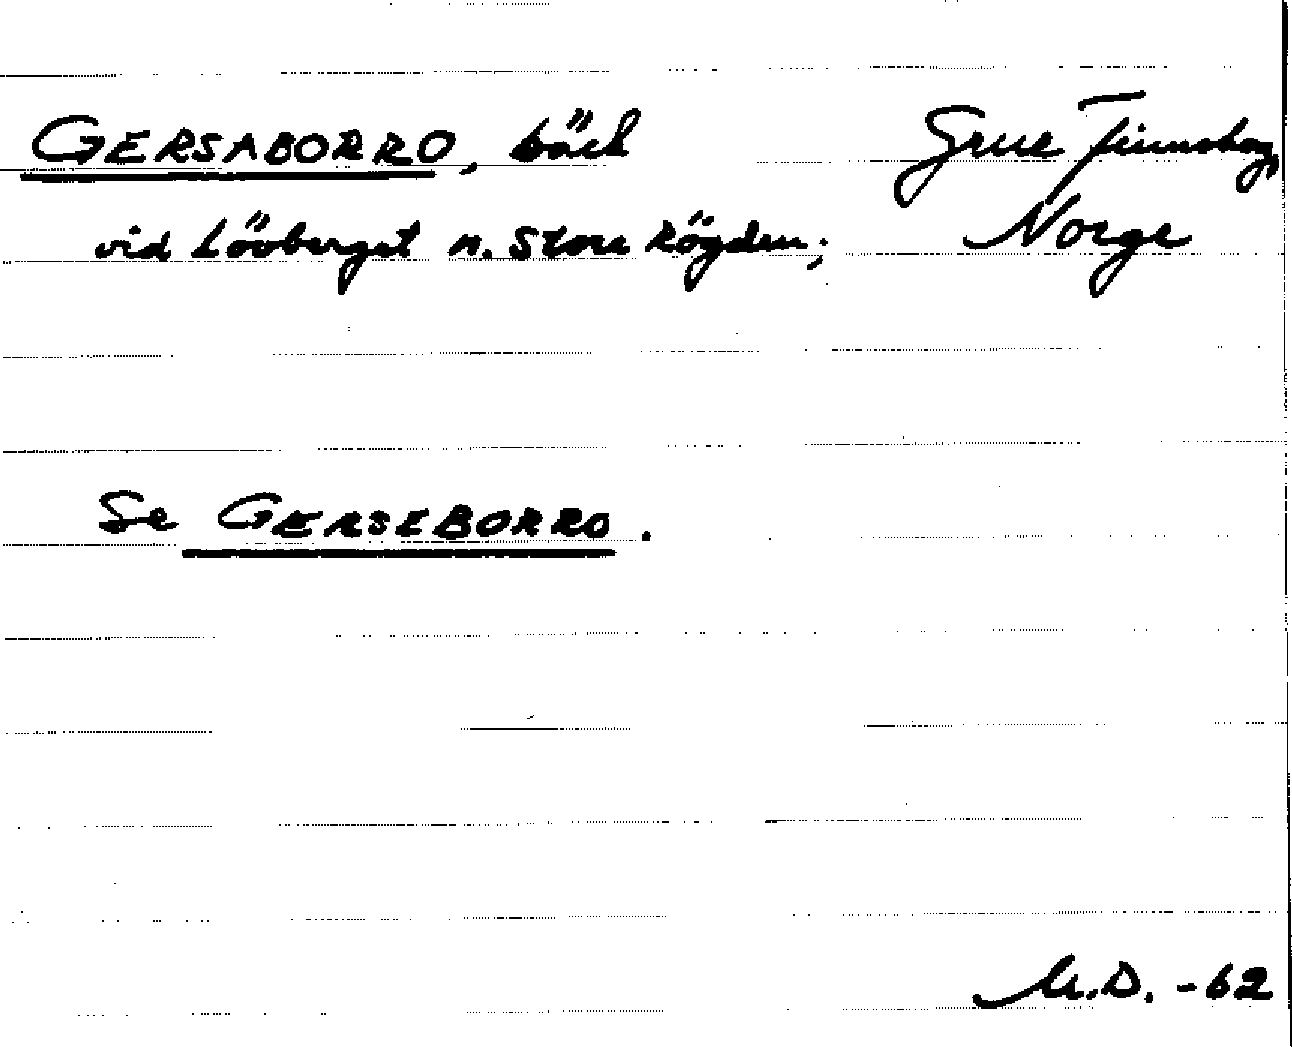 GERSABORRO, bäck
vid Lövberget n. Store Rögden;
Grue Finnskog,
Norge
Se GERSEBORRO.
M.D. -62